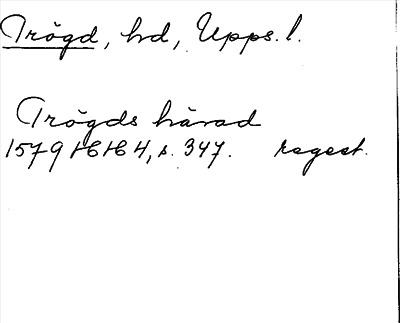 Trögd, hd, Upps. l.
Trögds härad
1579 HH 4, s. 347. regest.